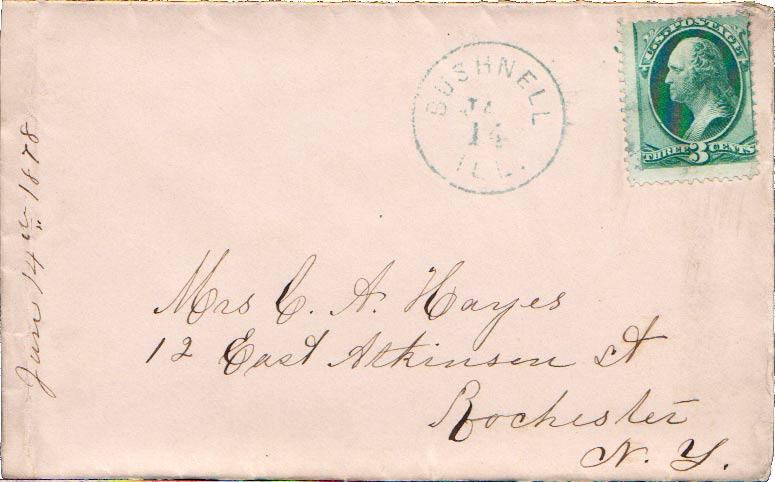 BUSHNELL
JA
14
ILL.
U.S. POSTAGE
THREE 3 CENTS
Jan 14th 1878
Mrs C. A. Hayes
12 East Atkinson St
Rochester
N. Y.